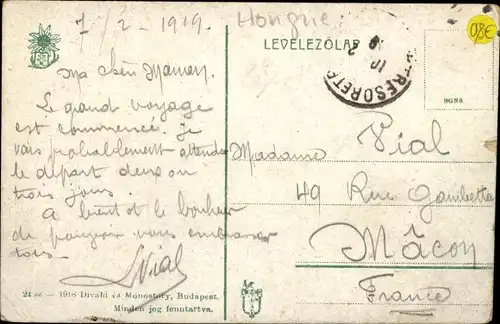 7/2 - 1919.
Hongrie
08€
LEVÉLEZŐLAP
TRESORET
9088
Ma chère Maman,
Le grand voyage
est commencé. Je
vais probablement attendre
le départ deux ou
trois jours.
A bientôt le bonheur
de pouvoir vous embrasser
tous.
Vial
Madame Vial
49 Rue Gambetta
Mâcon
France
1918 Divald és Monostory, Budapest.
Minden jog fenntartva.